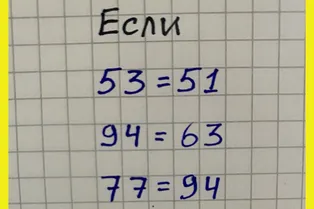 Если
53=51
94=63
77=94